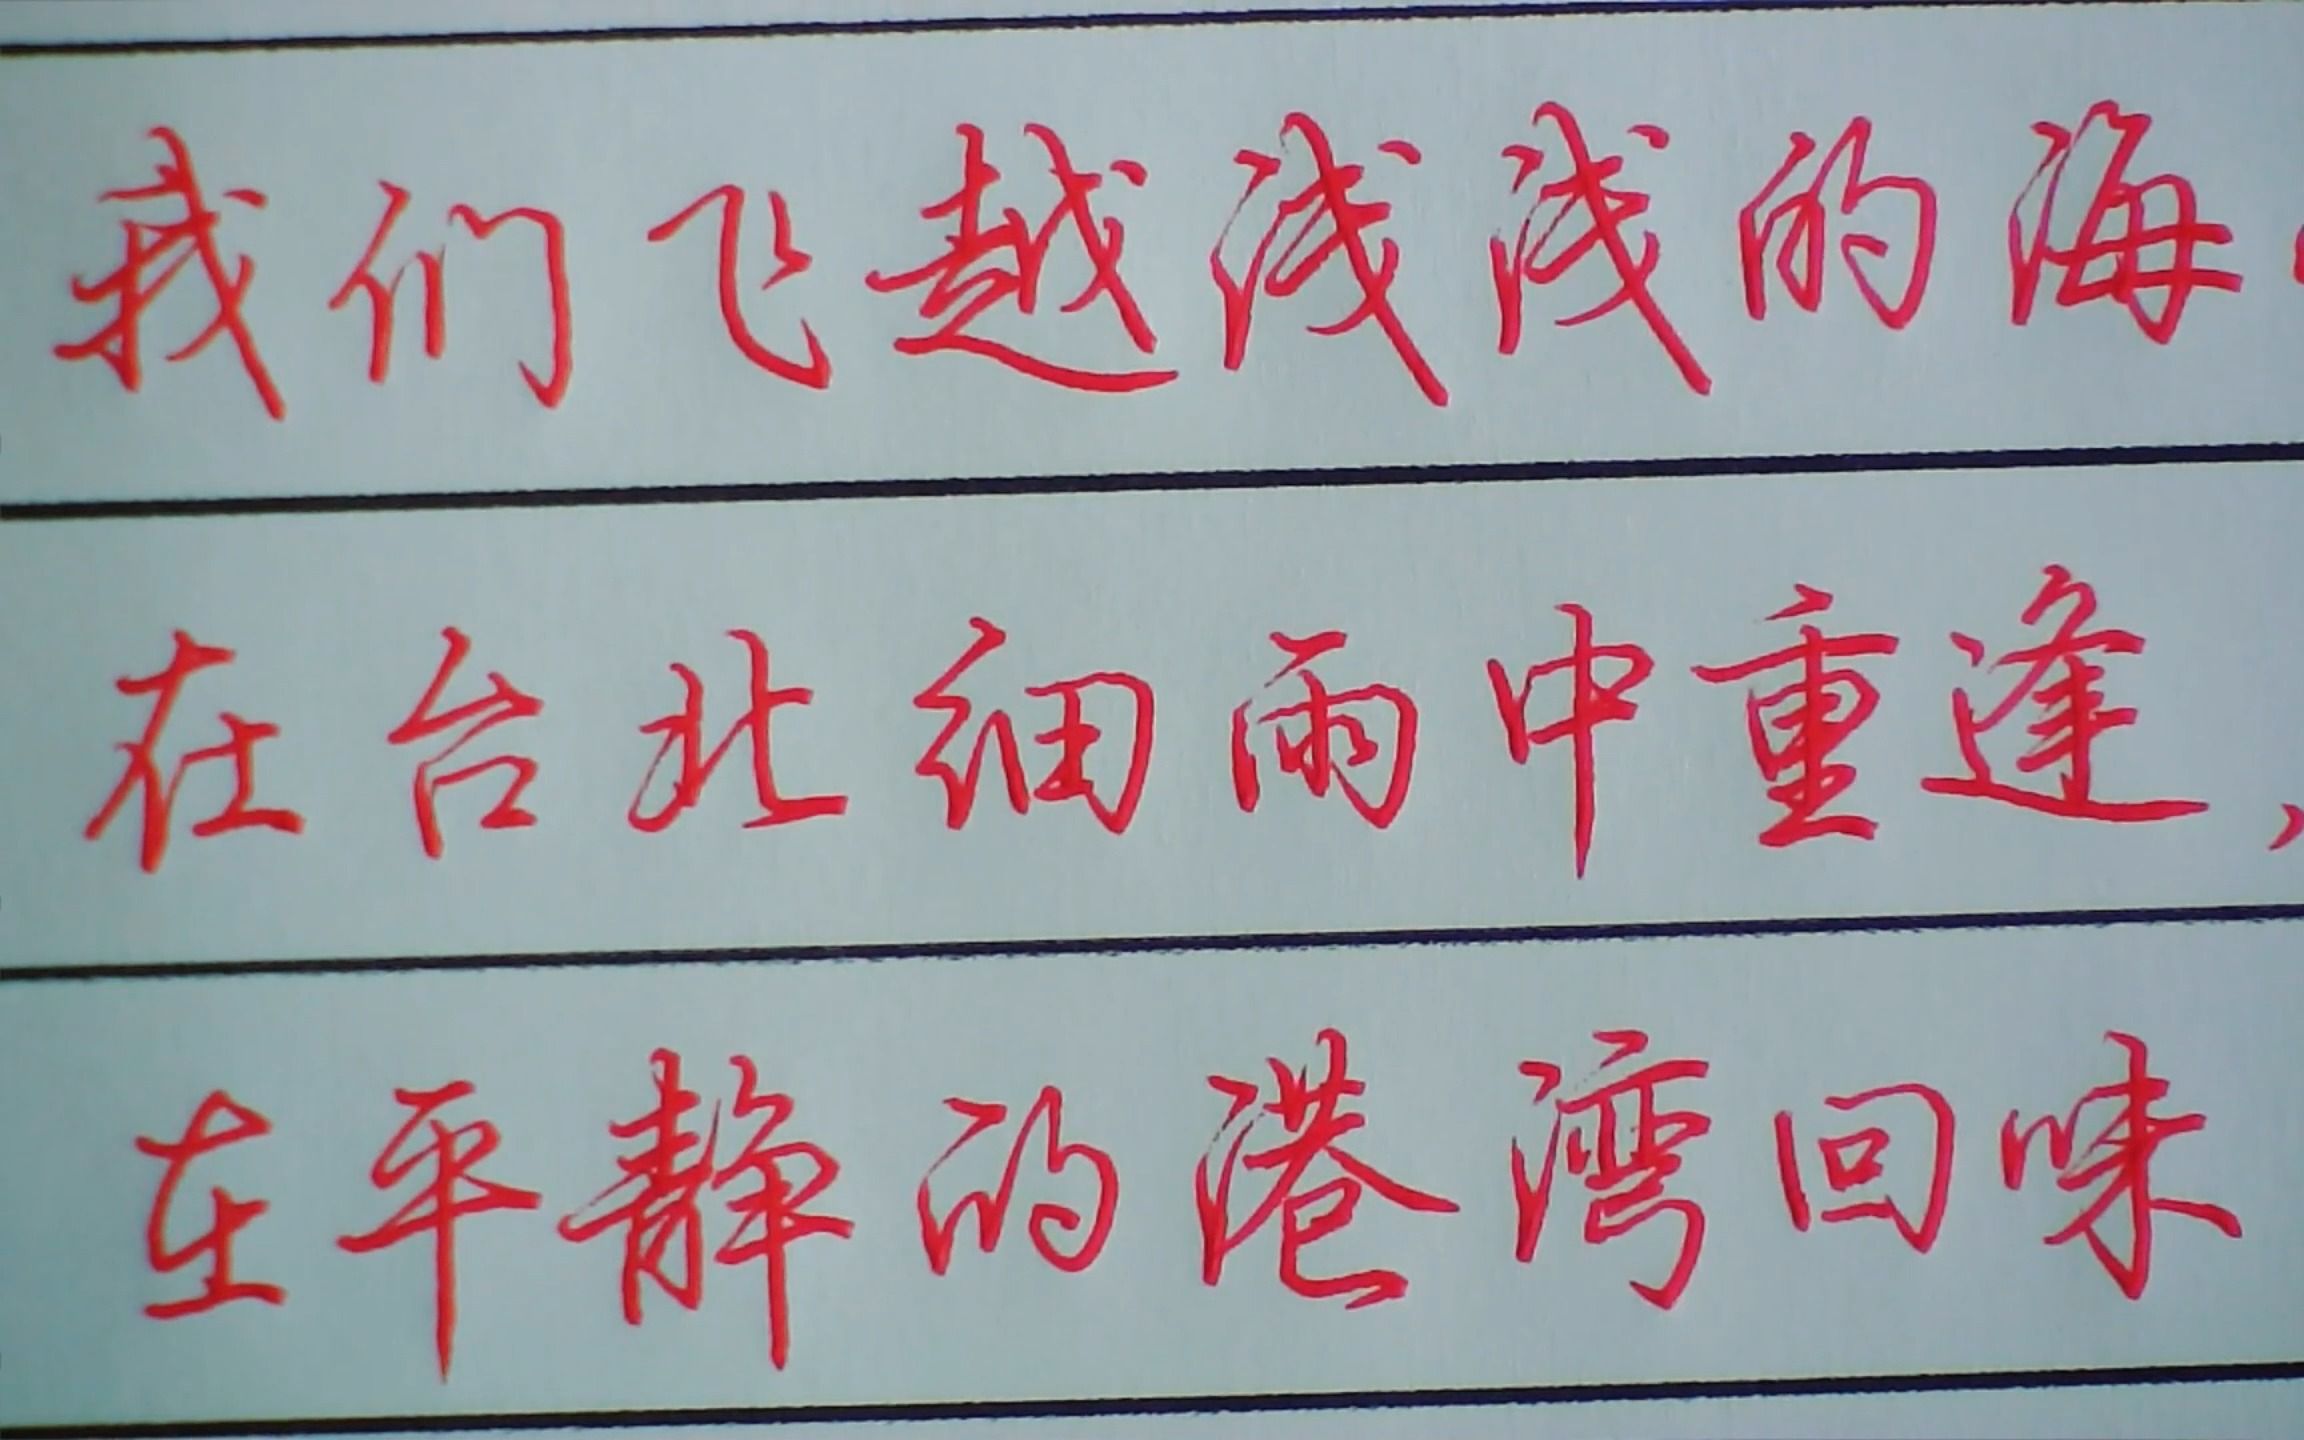 我们飞越浅浅的海
在台北细雨中重逢，
在平静的港湾回味